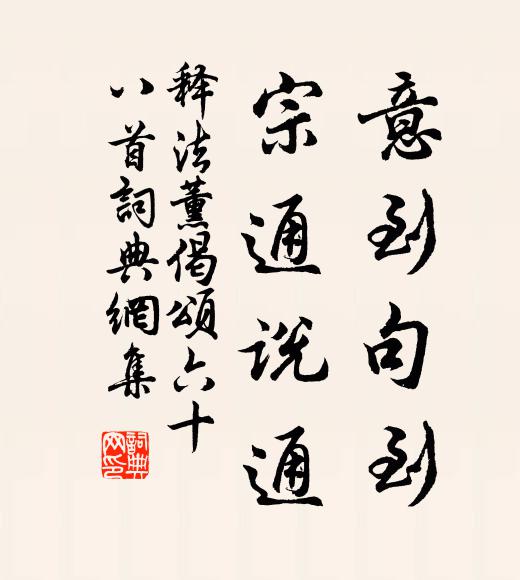 意到句到
宗通説通
释法薰偈頌六十
八首詞典網集
詞典
网印